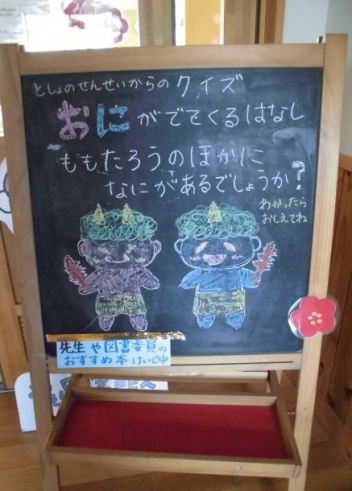 としょのせんせいからのクイズ
おにがでてくるはなし
ももたろうのほかに
なにがあるでしょうか?
わかったら
おしえてね
先生や図書委員の
おすすめ本 けいじ中